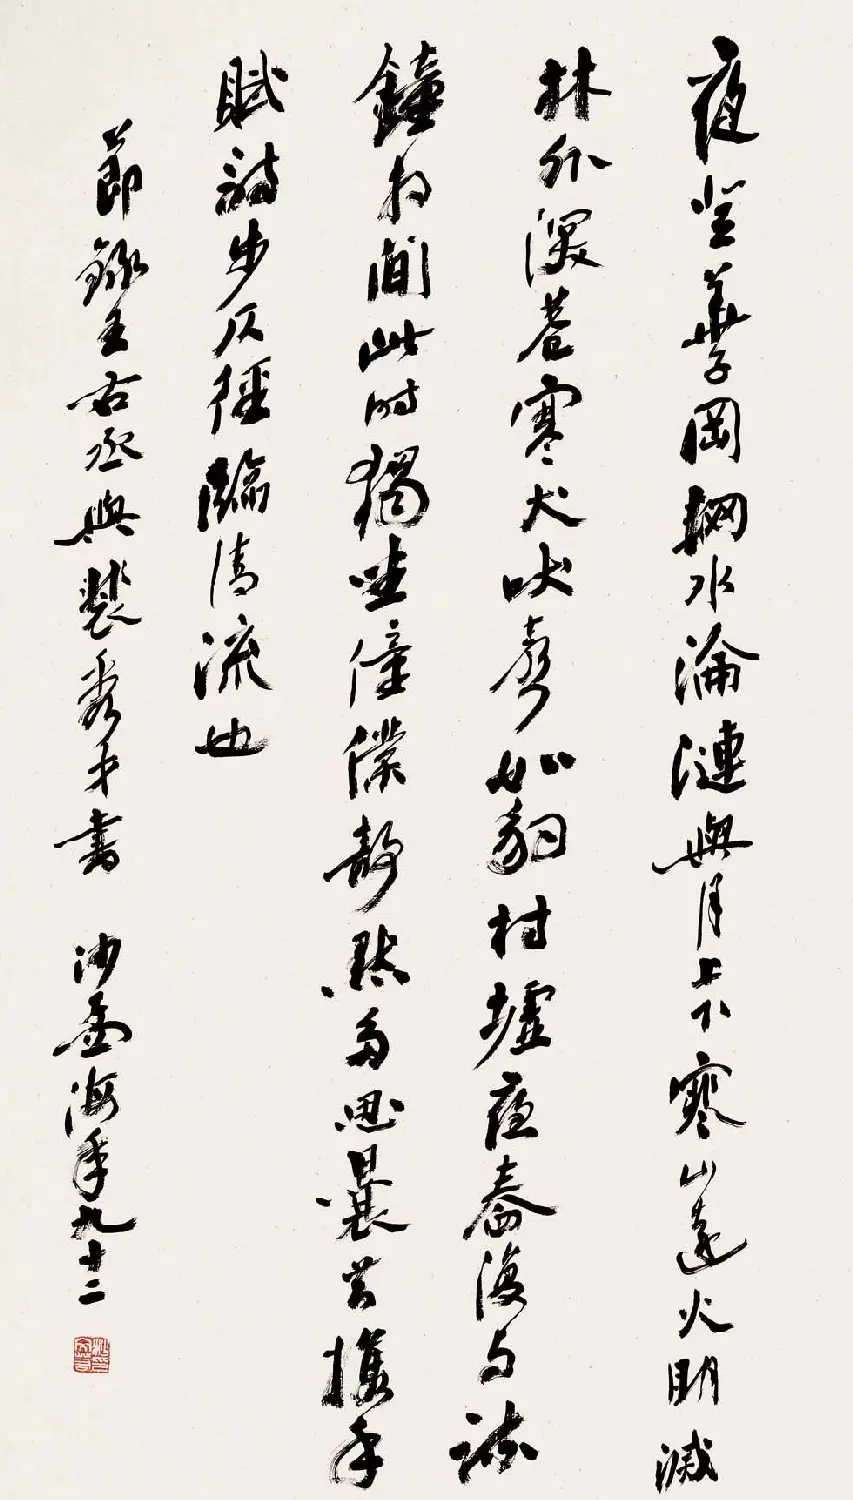 夜登華子岡輞水淪漣與月上下寒山遠火明滅
林外深巷寒犬吠聲如豹村墟夜舂復与疏
鐘相間此時獨坐僮僕靜默多思曩昔攜手
賦詩步仄徑臨清流也
節錄王右丞與裴秀才書 沙孟海年九十二